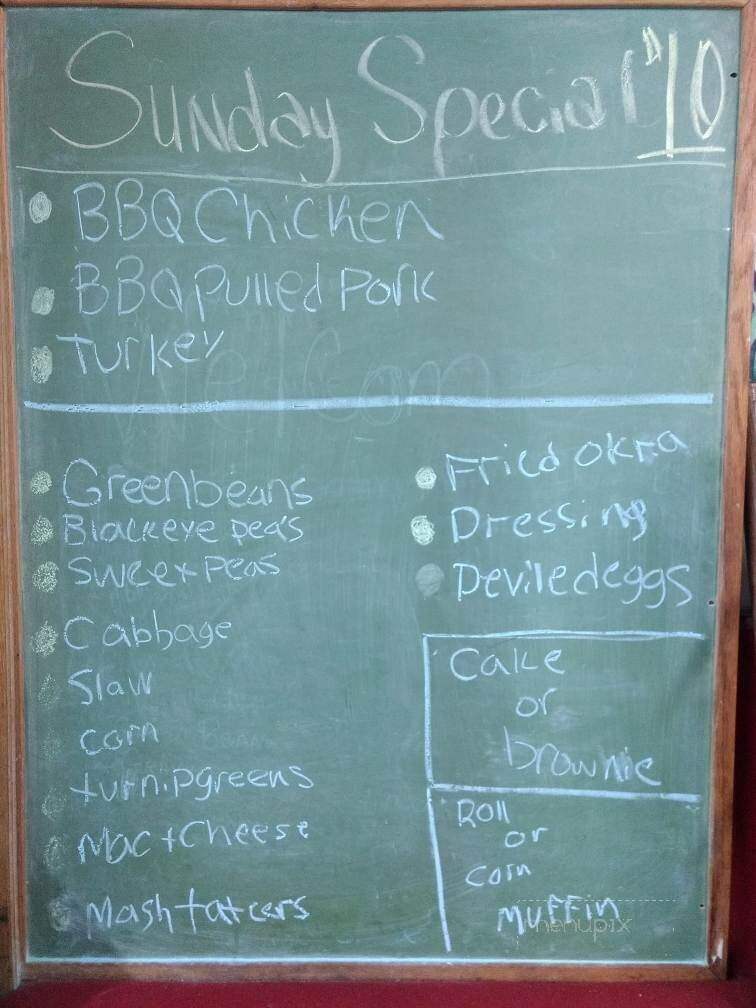 Sunday Special $10
BBQ Chicken
BBQ Pulled Pork
Turkey
Welcom
Greenbeans
Blackeye peas
Sweet Peas
Cabbage
Slaw
corn
turnipgreens
Mac + Cheese
Mash tatcers
Fried okra
Dressing
Deviledeggs
Cake
or
brownie
Roll
or
corn
MUFFIN
menupix